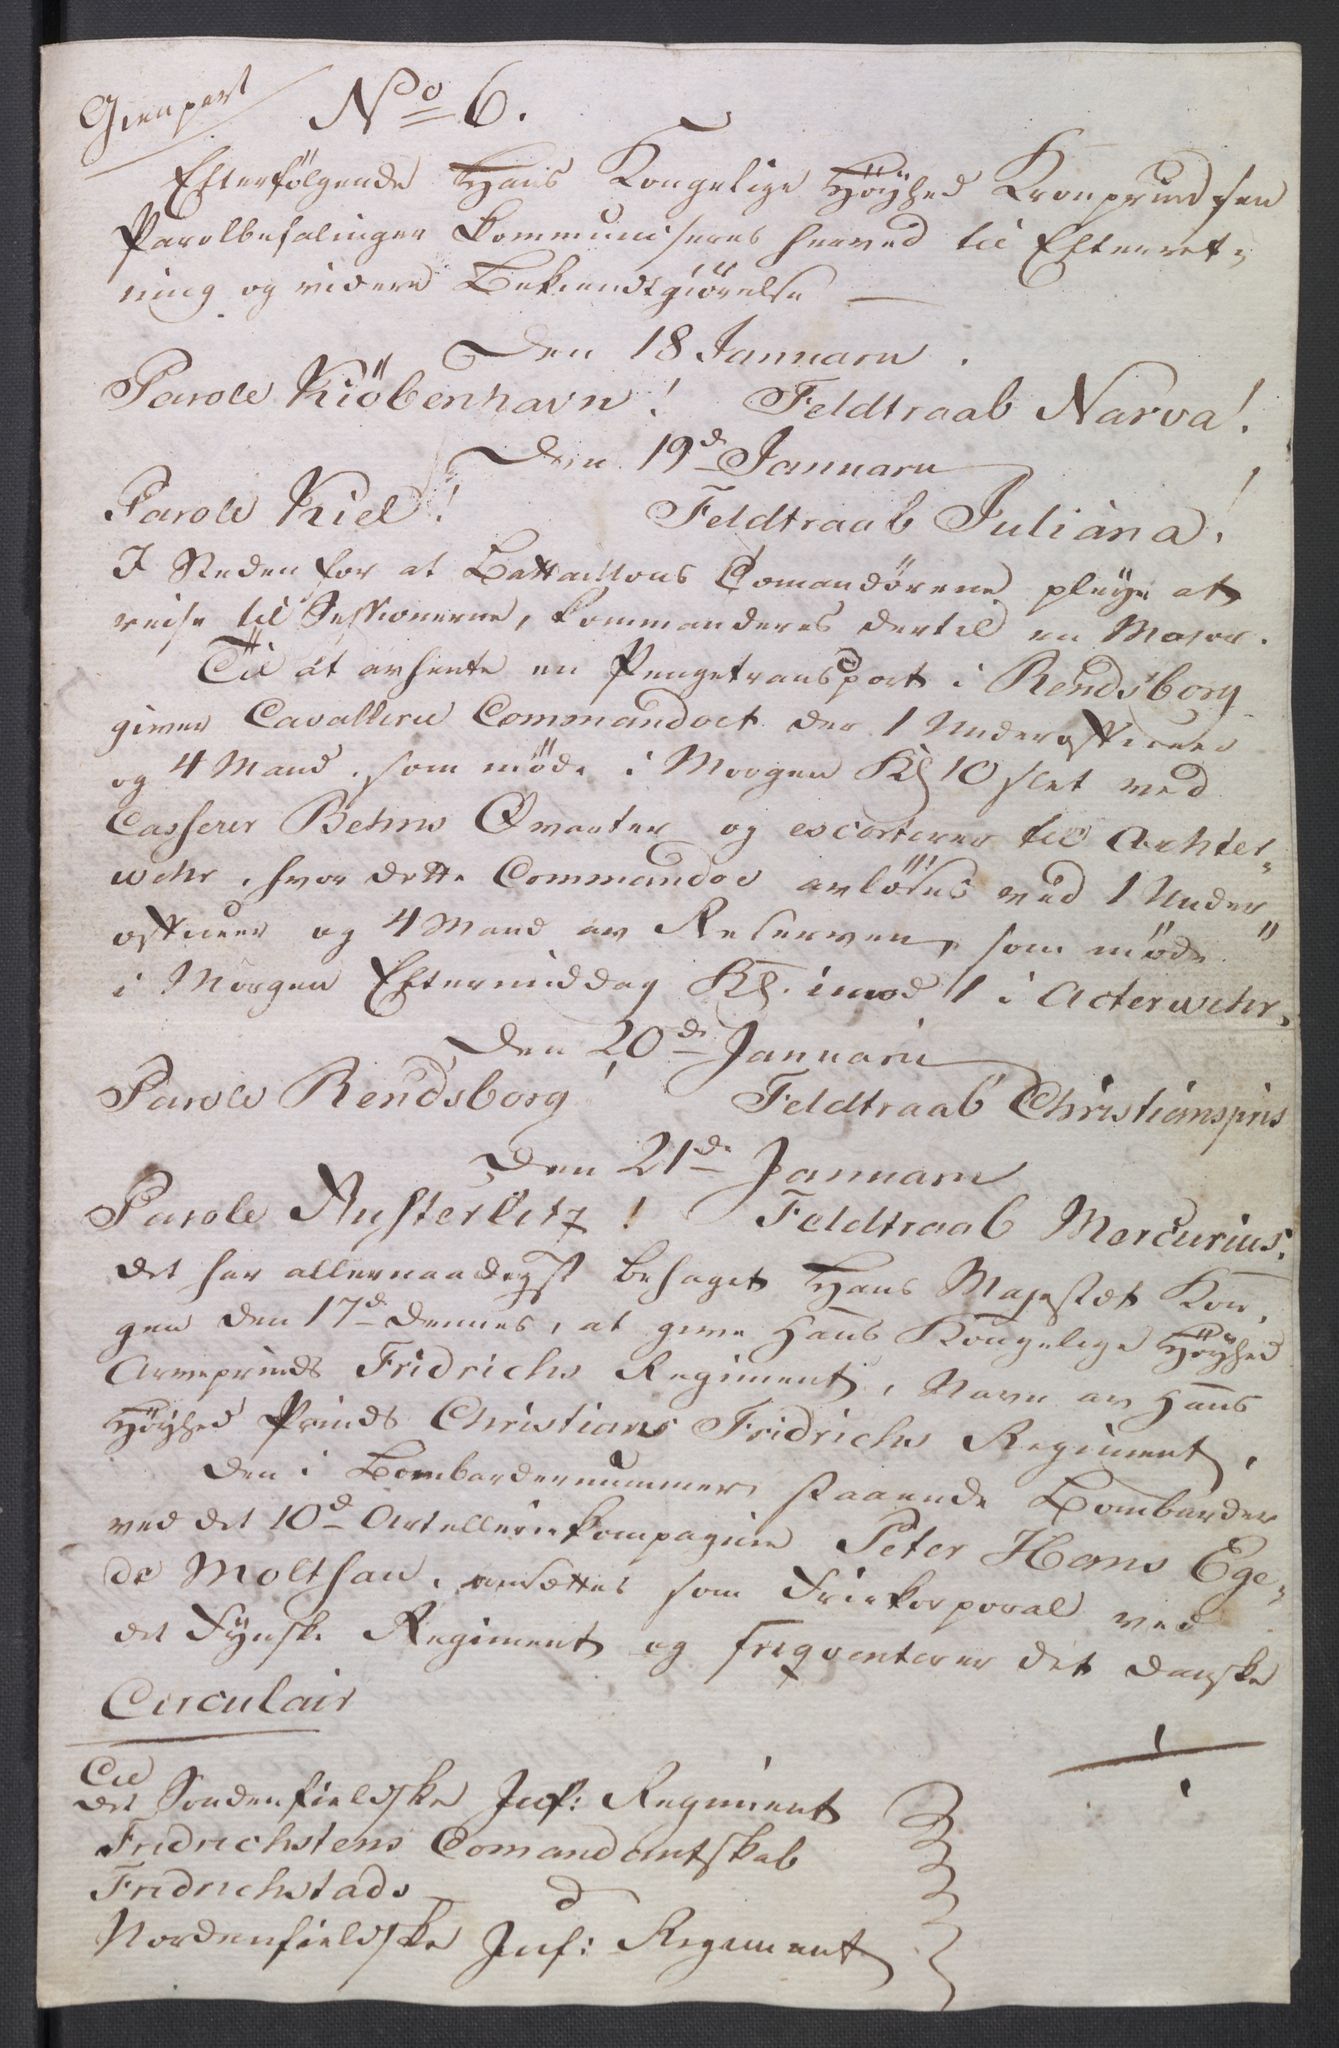 Gienpart
No 6.
Efterfölgende Hans Kongelige Höyhed Kronprindsen
Parolbefalinger kommuniseres herved til Efterret-
ning og videre Bekiendtgiörelse —
Den 18 Januarii.
Parole Kiöbenhavn! Feldtraab Narva!
Den 19de Januarii
Parole Kiel! Feldtraab Juliana!
I Steden for at Battaillons Comandörene pleye at
reise til Sessionerne, kommanderes dertil en Major.
Til at avhente en Pengetransport i Rendsborg
giver Cavallerie Commandoet der 1 Underofficeer
og 4 Mand, som möde i Morgen Kl 10 slet ved
Casserer Behns Qvarteer og escorterer til Achter-
wehr, hvor dette Commandoe avlöses med 1 Under
officeer og 4 Mand av Reserven, som möde
i Morgen Eftermiddag Kl. imod 1 i Acterwehr.
Den 20de Januarii
Parole Rendsborg! Feldtraab Christianspris
Den 21de Januarii
Parole Austerlitz! Feldtraab Mercurius.
Det har allernaadigst behaget Hans Majestæt Kon-
gen den 17de dennes, at give Hans Kongelige Höyhed
Arveprinds Fridrichs Regiment, Navn av Hans
Höyhed Prinds Christians Fridrichs Regiment.
Den i Bombardernummer staaende Bombarder
ved det 10de Artelleriekompagnie Peter Hans Ege-
de Molthau, ansættes som Friekorporal ved
det Fynske Regiment og freqventerer det danske
Circulair
Til
det Söndenfieldske Inf: Regiment
Fridrichstens Comandantskab
Fridrichstads — d
Nordenfieldske Inf: Regiment